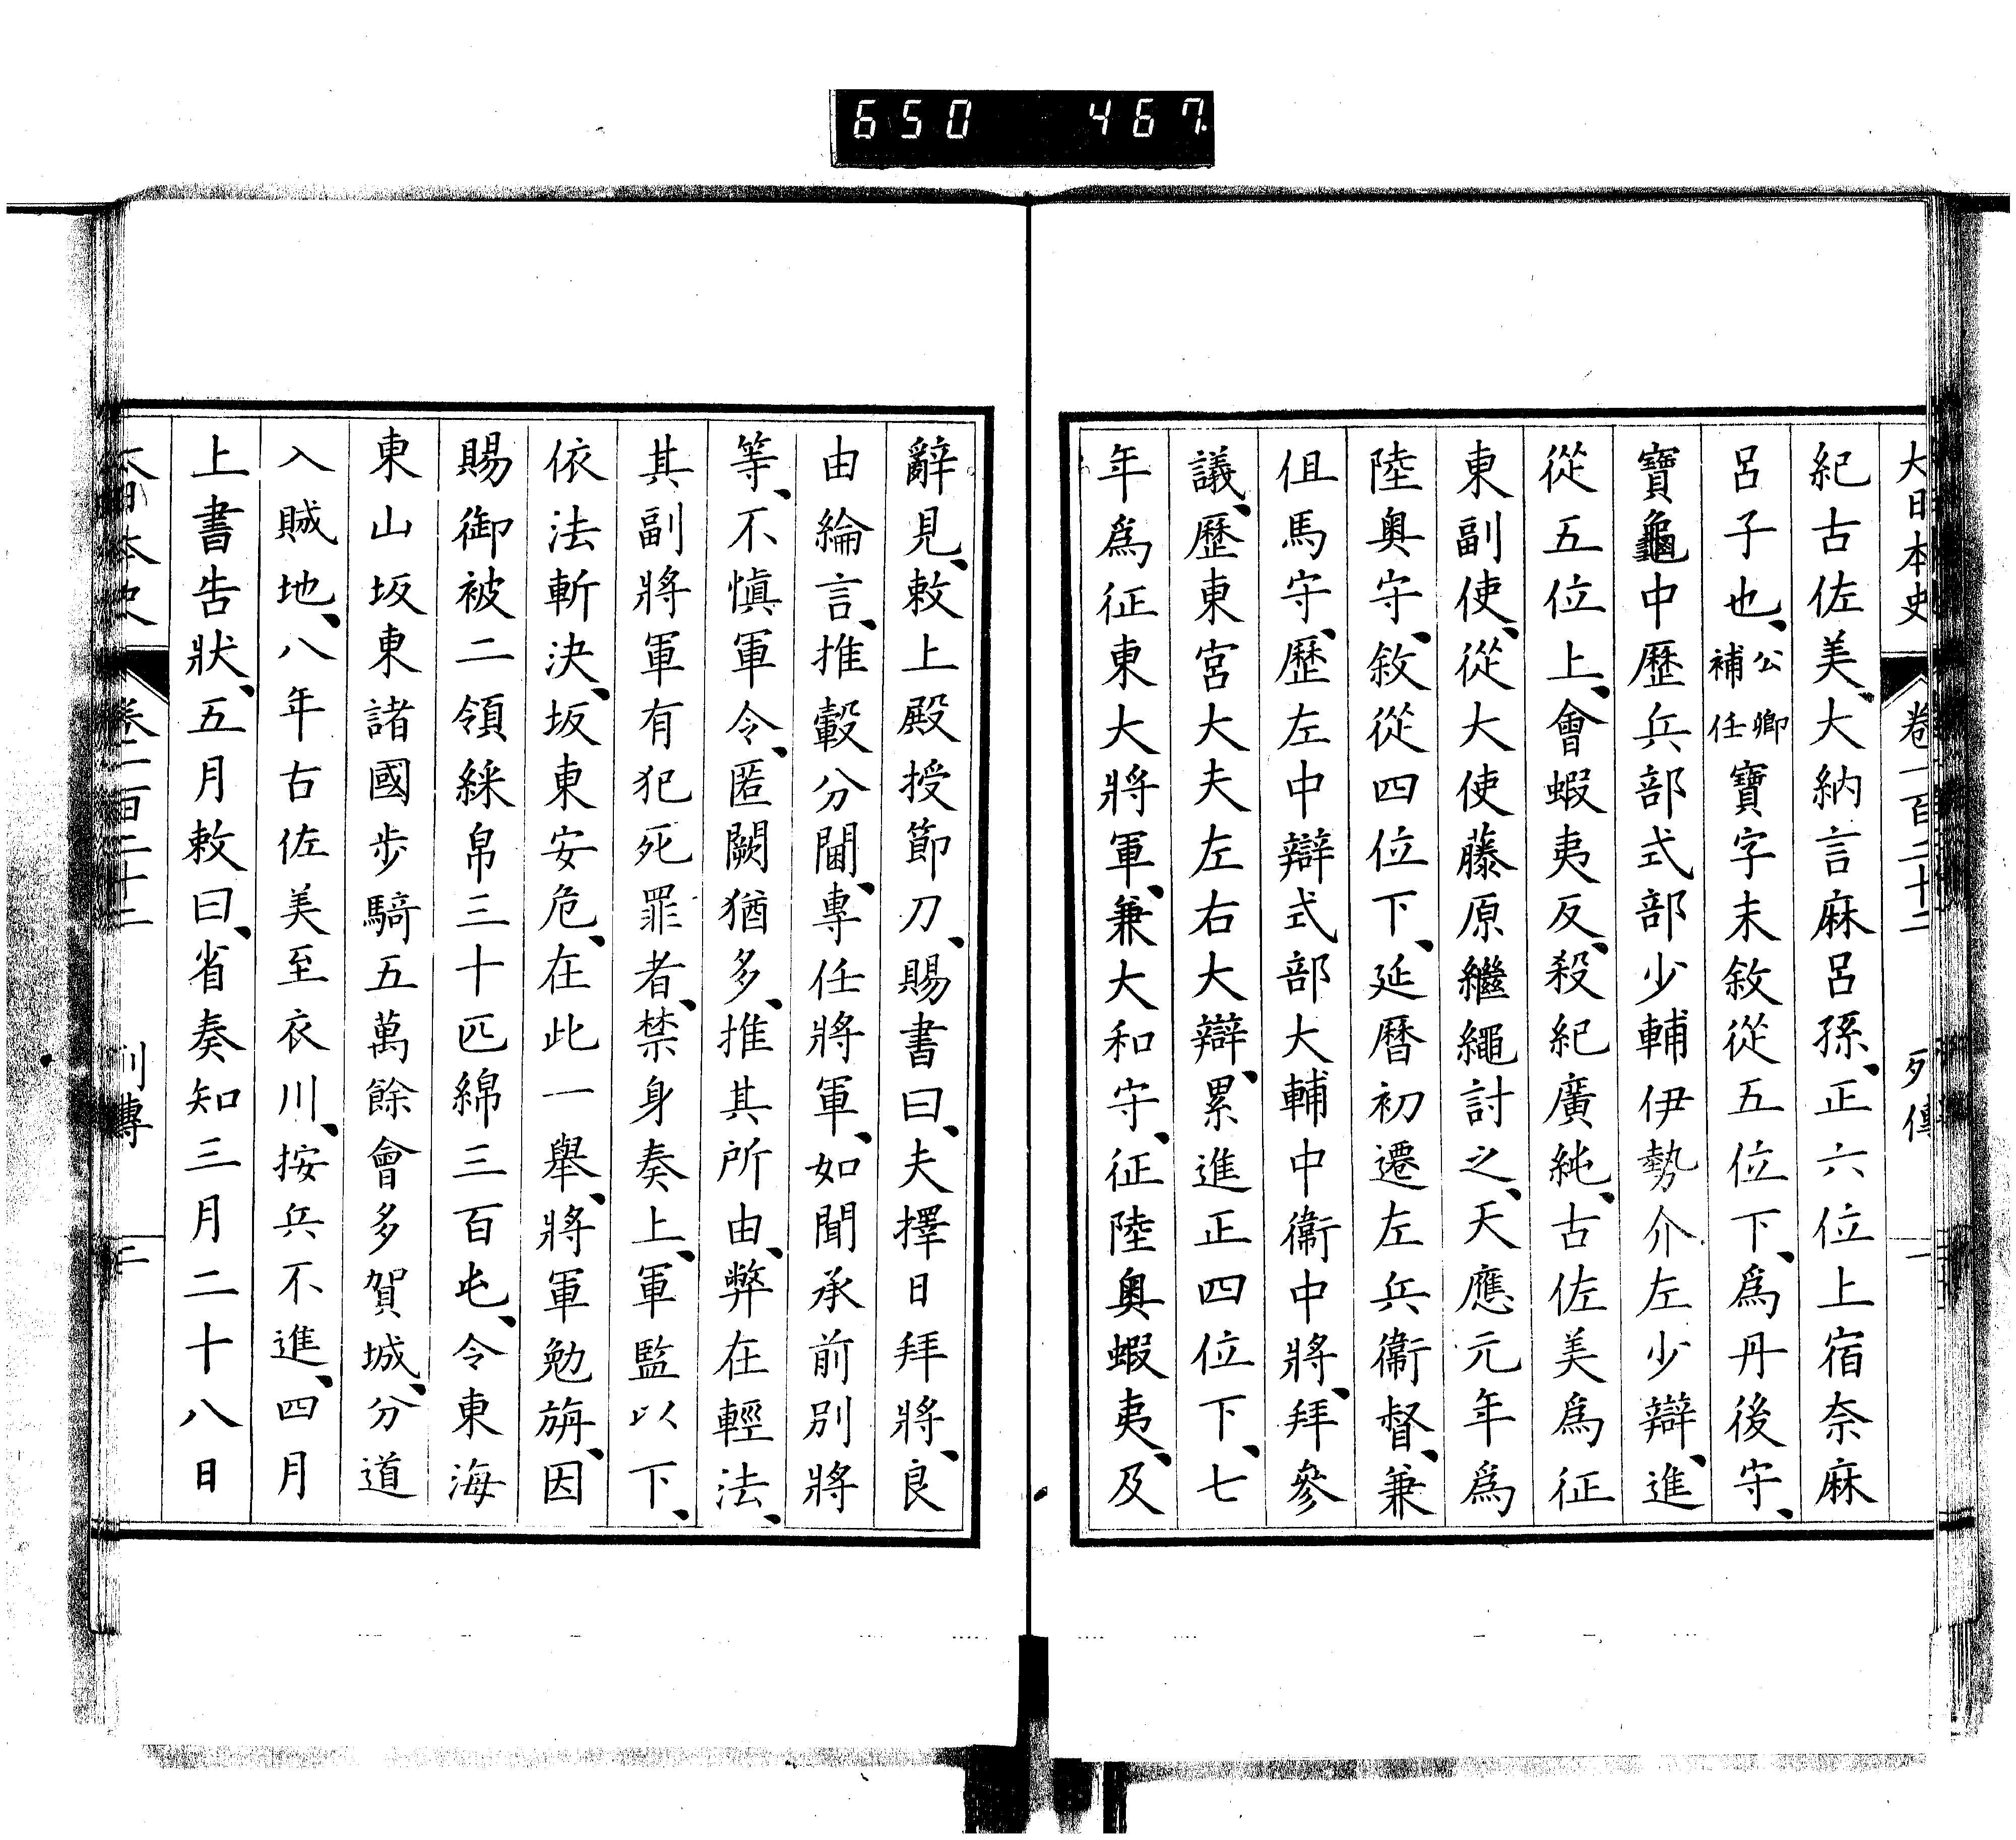 650 467
大日本史 卷一百二十二 列傳 一
紀古佐美、大納言麻呂孫、正六位上宿奈麻
呂子也、公卿補任寶字末敘從五位下、爲丹後守、
寶龜中歷兵部式部少輔伊勢介左少辯、進
從五位上、會蝦夷反、殺紀廣純、古佐美爲征
東副使、從大使藤原繼繩討之、天應元年爲
陸奧守、敘從四位下、延曆初遷左兵衞督、兼
但馬守、歷左中辯式部大輔中衞中將、拜參
議、歷東宮大夫左右大辯、累進正四位下、七
年爲征東大將軍、兼大和守、征陸奧蝦夷、及
辭見、敕上殿授節刀、賜書曰、夫擇日拜將、良
由綸言、推轂分閫、專任將軍、如聞承前別將
等、不愼軍令、匿闕猶多、推其所由、弊在輕法、
其副將軍有犯死罪者、禁身奏上、軍監以下、
依法斬決、坂東安危、在此一舉、將軍勉旃、因
賜御被二領綵帛三十匹綿三百屯、令東海
東山坂東諸國步騎五萬餘會多賀城、分道
入賊地、八年古佐美至衣川、按兵不進、四月
上書告狀、五月敕曰、省奏知三月二十八日
大日本史 卷一百二十二 列傳 二